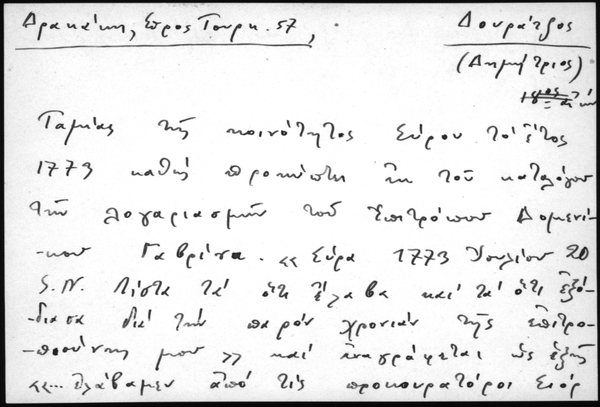 Δρακάκη, Σῦρος Τουρκ. 57, Δουράτζος
(Δημήτριος)
Ταμίας τῆς κοινότητος Σύρου τό ἔτος
1773 καθώς προκύπτει ἐκ τοῦ καταλόγου
τῶν λογαριασμῶν τοῦ Ἐπιτρόπου Δομενί-
-κου Γαβρίσα. << Σύρα 1773 Ἰουλίου 20
S.N. Λίστα τά ὅτι ἔλαβα καί τά ὅτι ἐξό-
-διασα διά τήν παρόν χρονιάν τῆς ἐπιτρο-
-ποσύνης μου >> καί ἀναγράφεται ὡς ἑξῆς
<<... ἐλάβαμεν ἀπό τίς προκουρατόροι Σιόρ